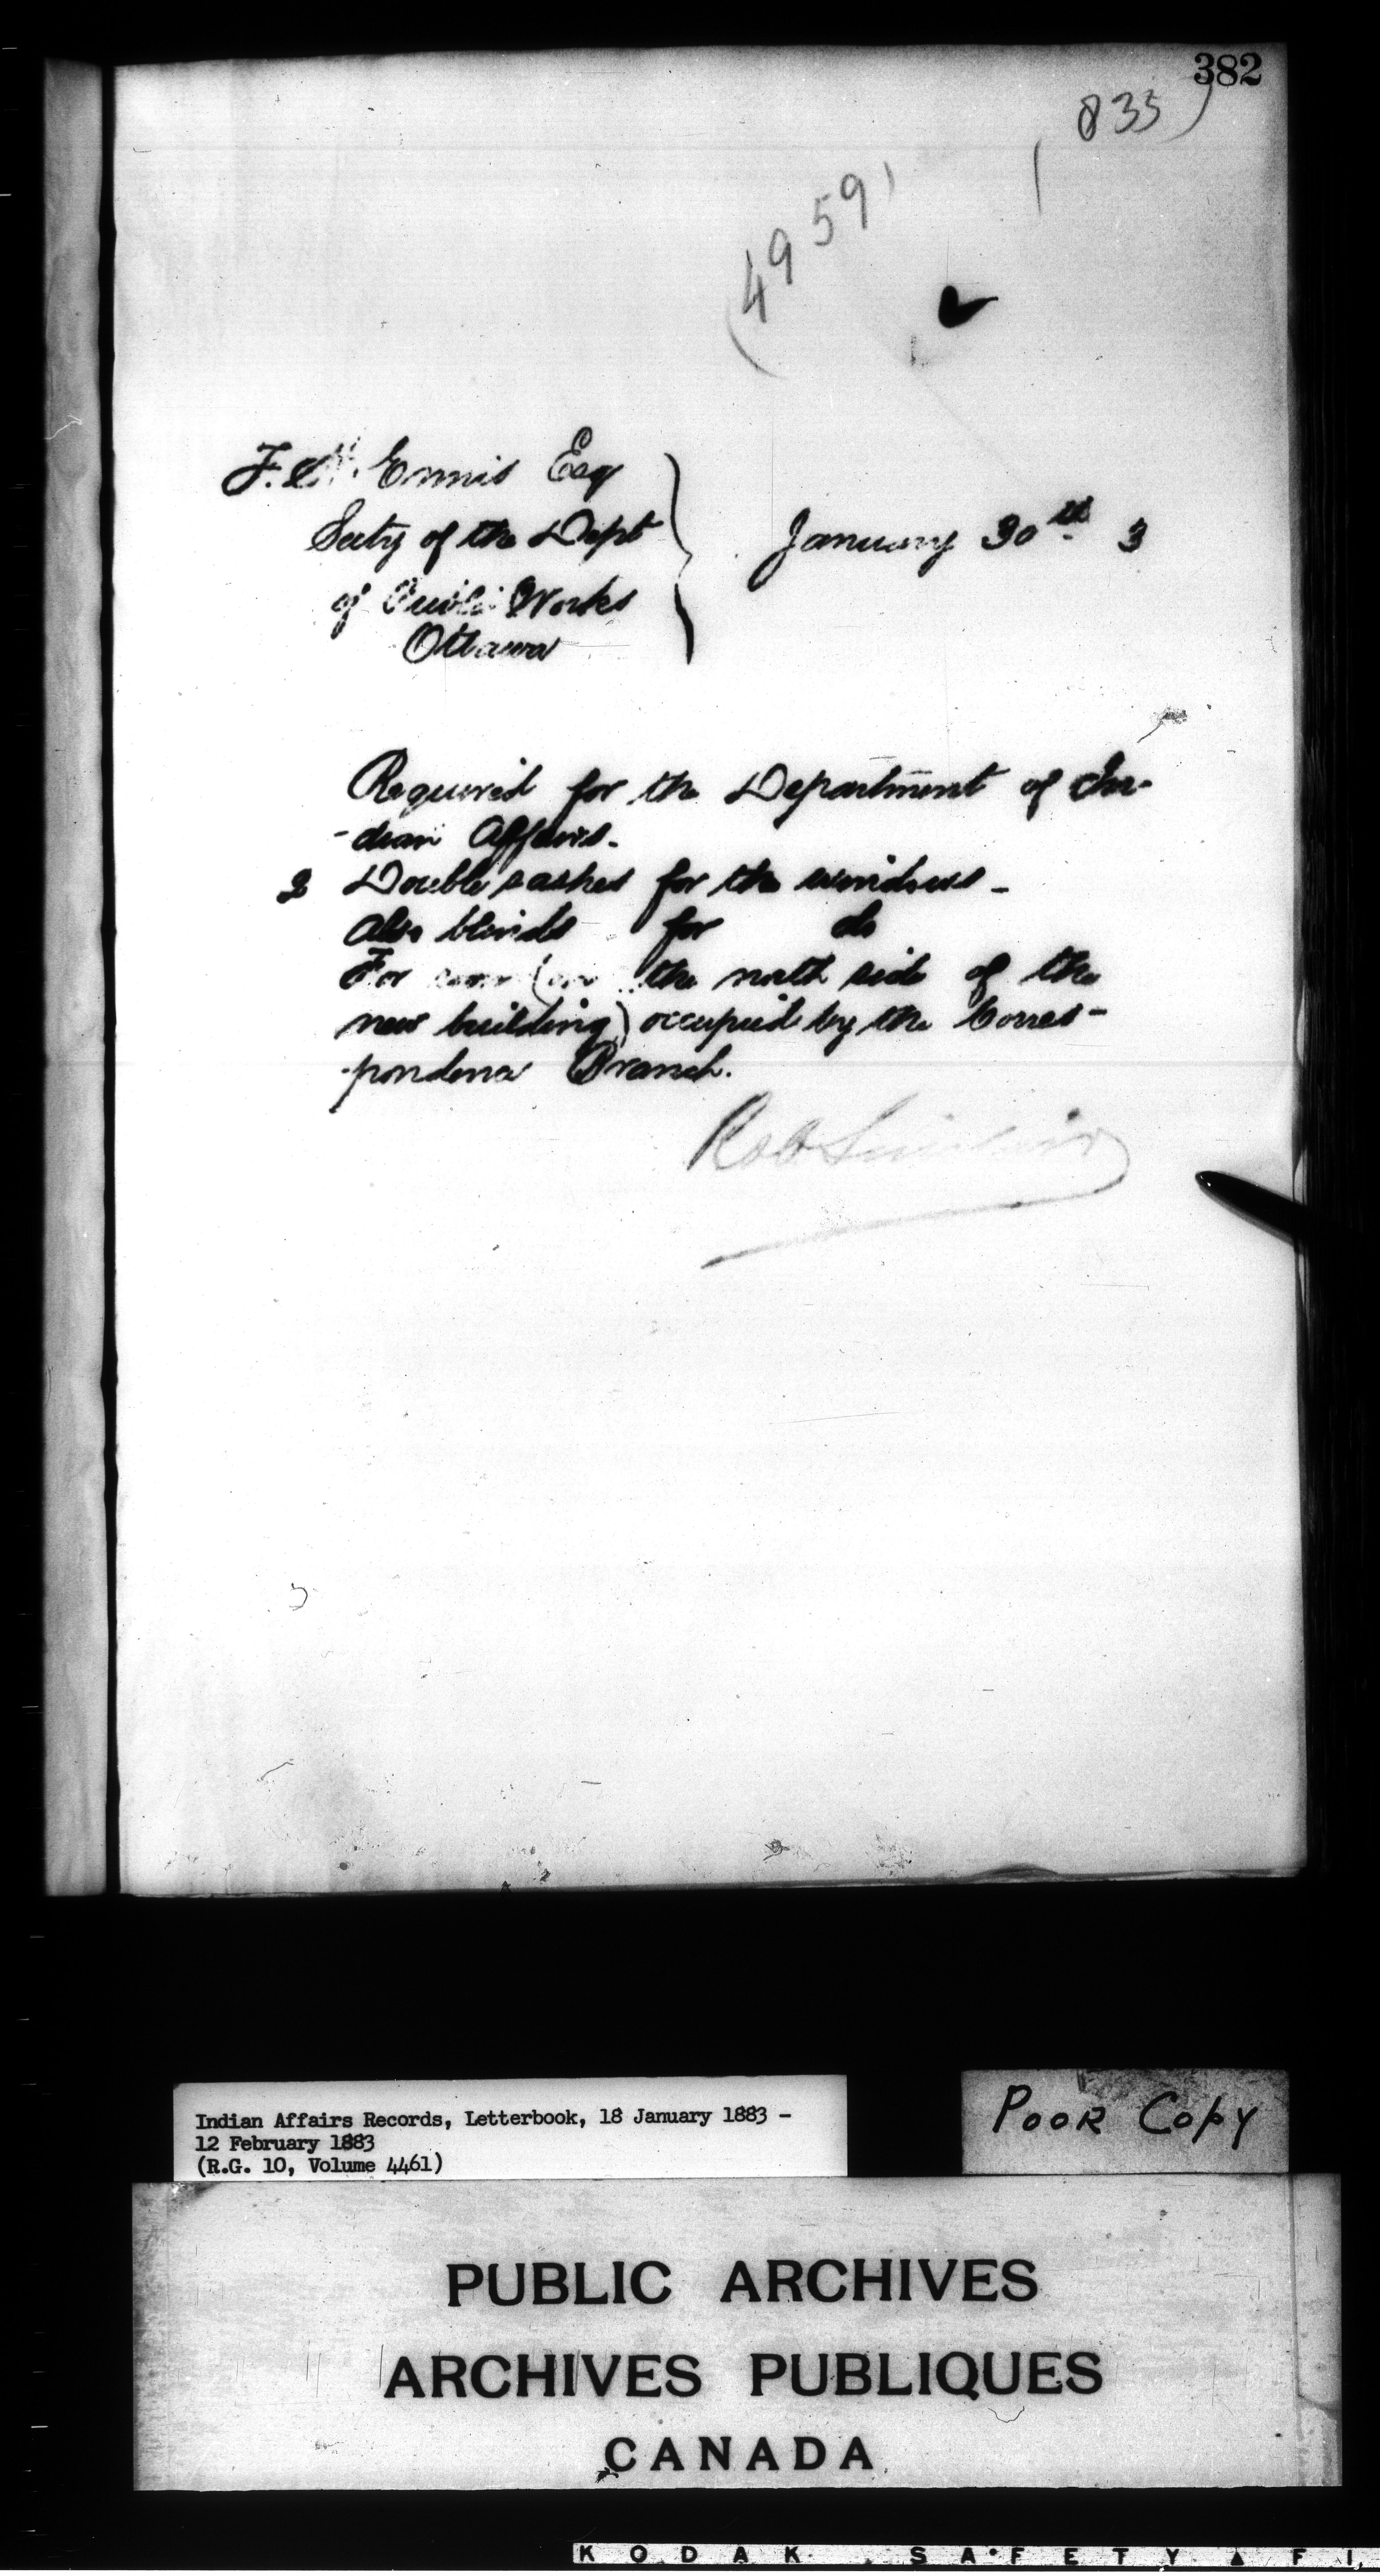 382
(835)
(4959)
F. H. Ennis Esq
Secty of the Dept
of Public Works
Ottawa
January 30th 3
Required for the Department of In-
-dian Affairs.
2 Double sashes for the windows -
Also blinds for do
For room (on the north side of the
new building) occupied by the Corres-
-pondence Branch.
Rob Sinclair
Indian Affairs Records, Letterbook, 18 January 1883 -
12 February 1883
(R.G. 10, Volume 4461)
POOR COPY
PUBLIC ARCHIVES
ARCHIVES PUBLIQUES
CANADA
KODAK SAFETY ▲ FI